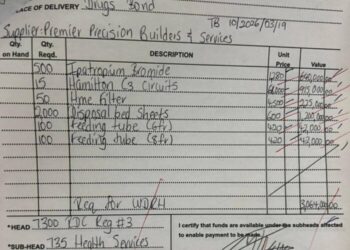 PLACE OF DELIVERY Drugs Bond
TB 10/2026/03/19
Supplier: Premier Precision Builders & Services
Qty. on Hand Qty. Reqd. DESCRIPTION Unit Price Value
500 Ipatropium Bromide 1280
15 Hamilton C3 Circuits
50 Hme Filter 4500 225,000.00
2,000 Disposal bed Sheets 600 1,200,000.00
100 Feeding tube (6fr) 420 42,000.00
100 Feeding tube (8fr) 420 42,000.00
Req for WDRH 3,064,000.00
*HEAD 7300 PDC Reg #3
*SUB-HEAD 735 Health Services
I certify that funds are available under the subheads affected
to enable payment to be made.